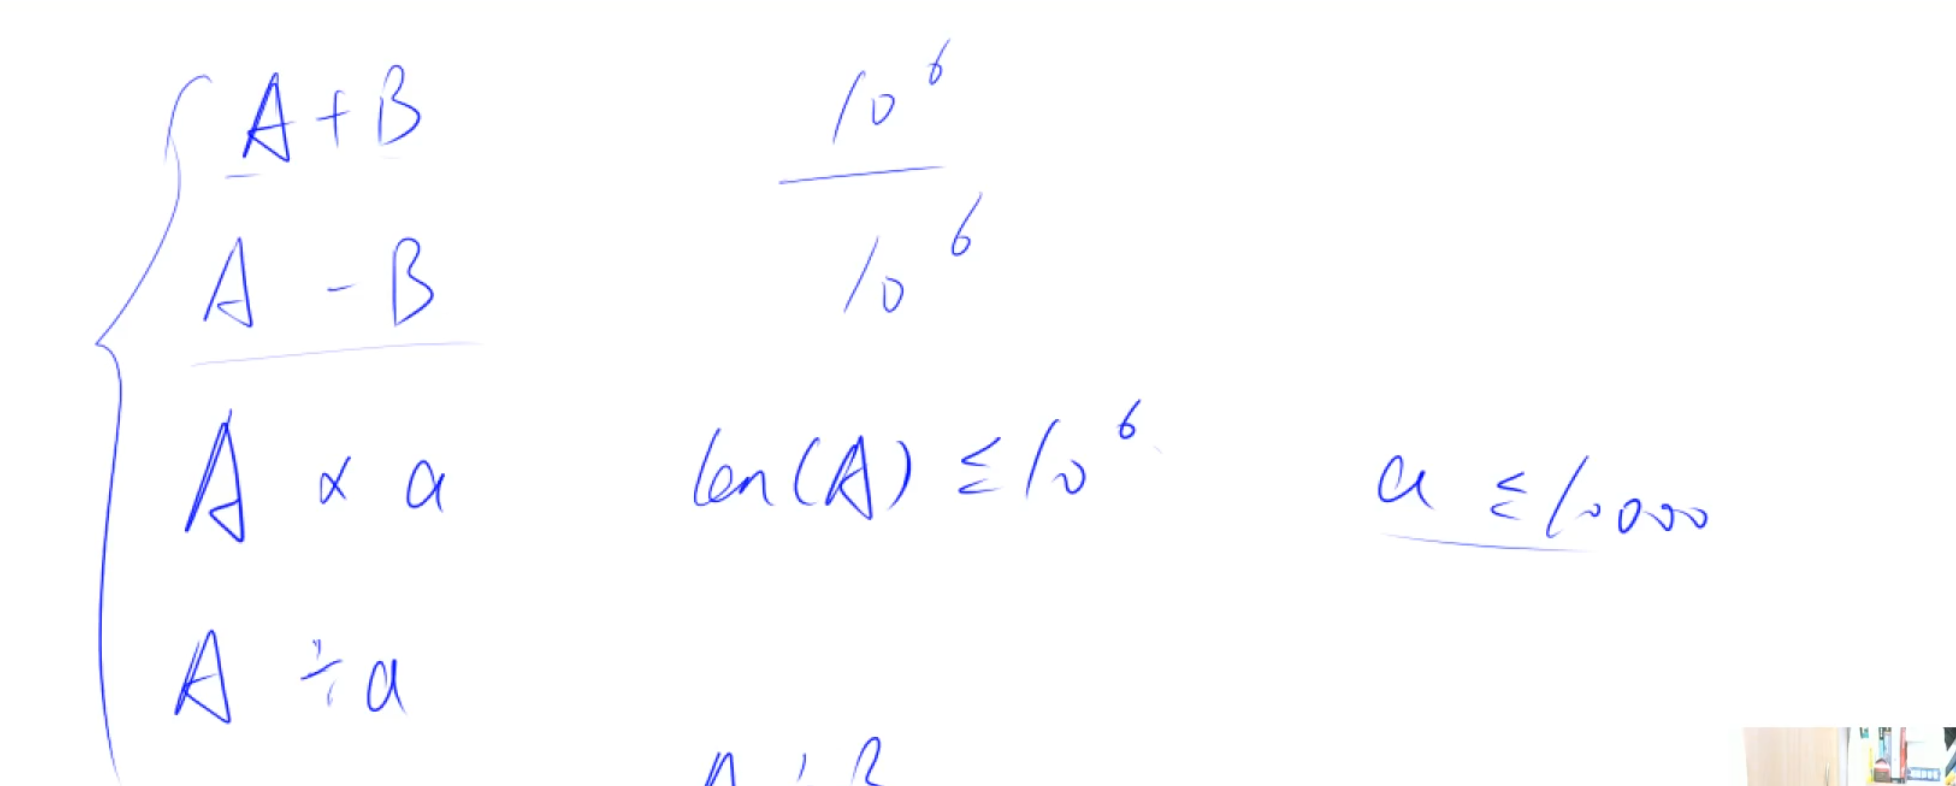 A + B 10⁶
A - B 10⁶
A × a len(A) ≤ 10⁶ a ≤ 10000
A ÷ a